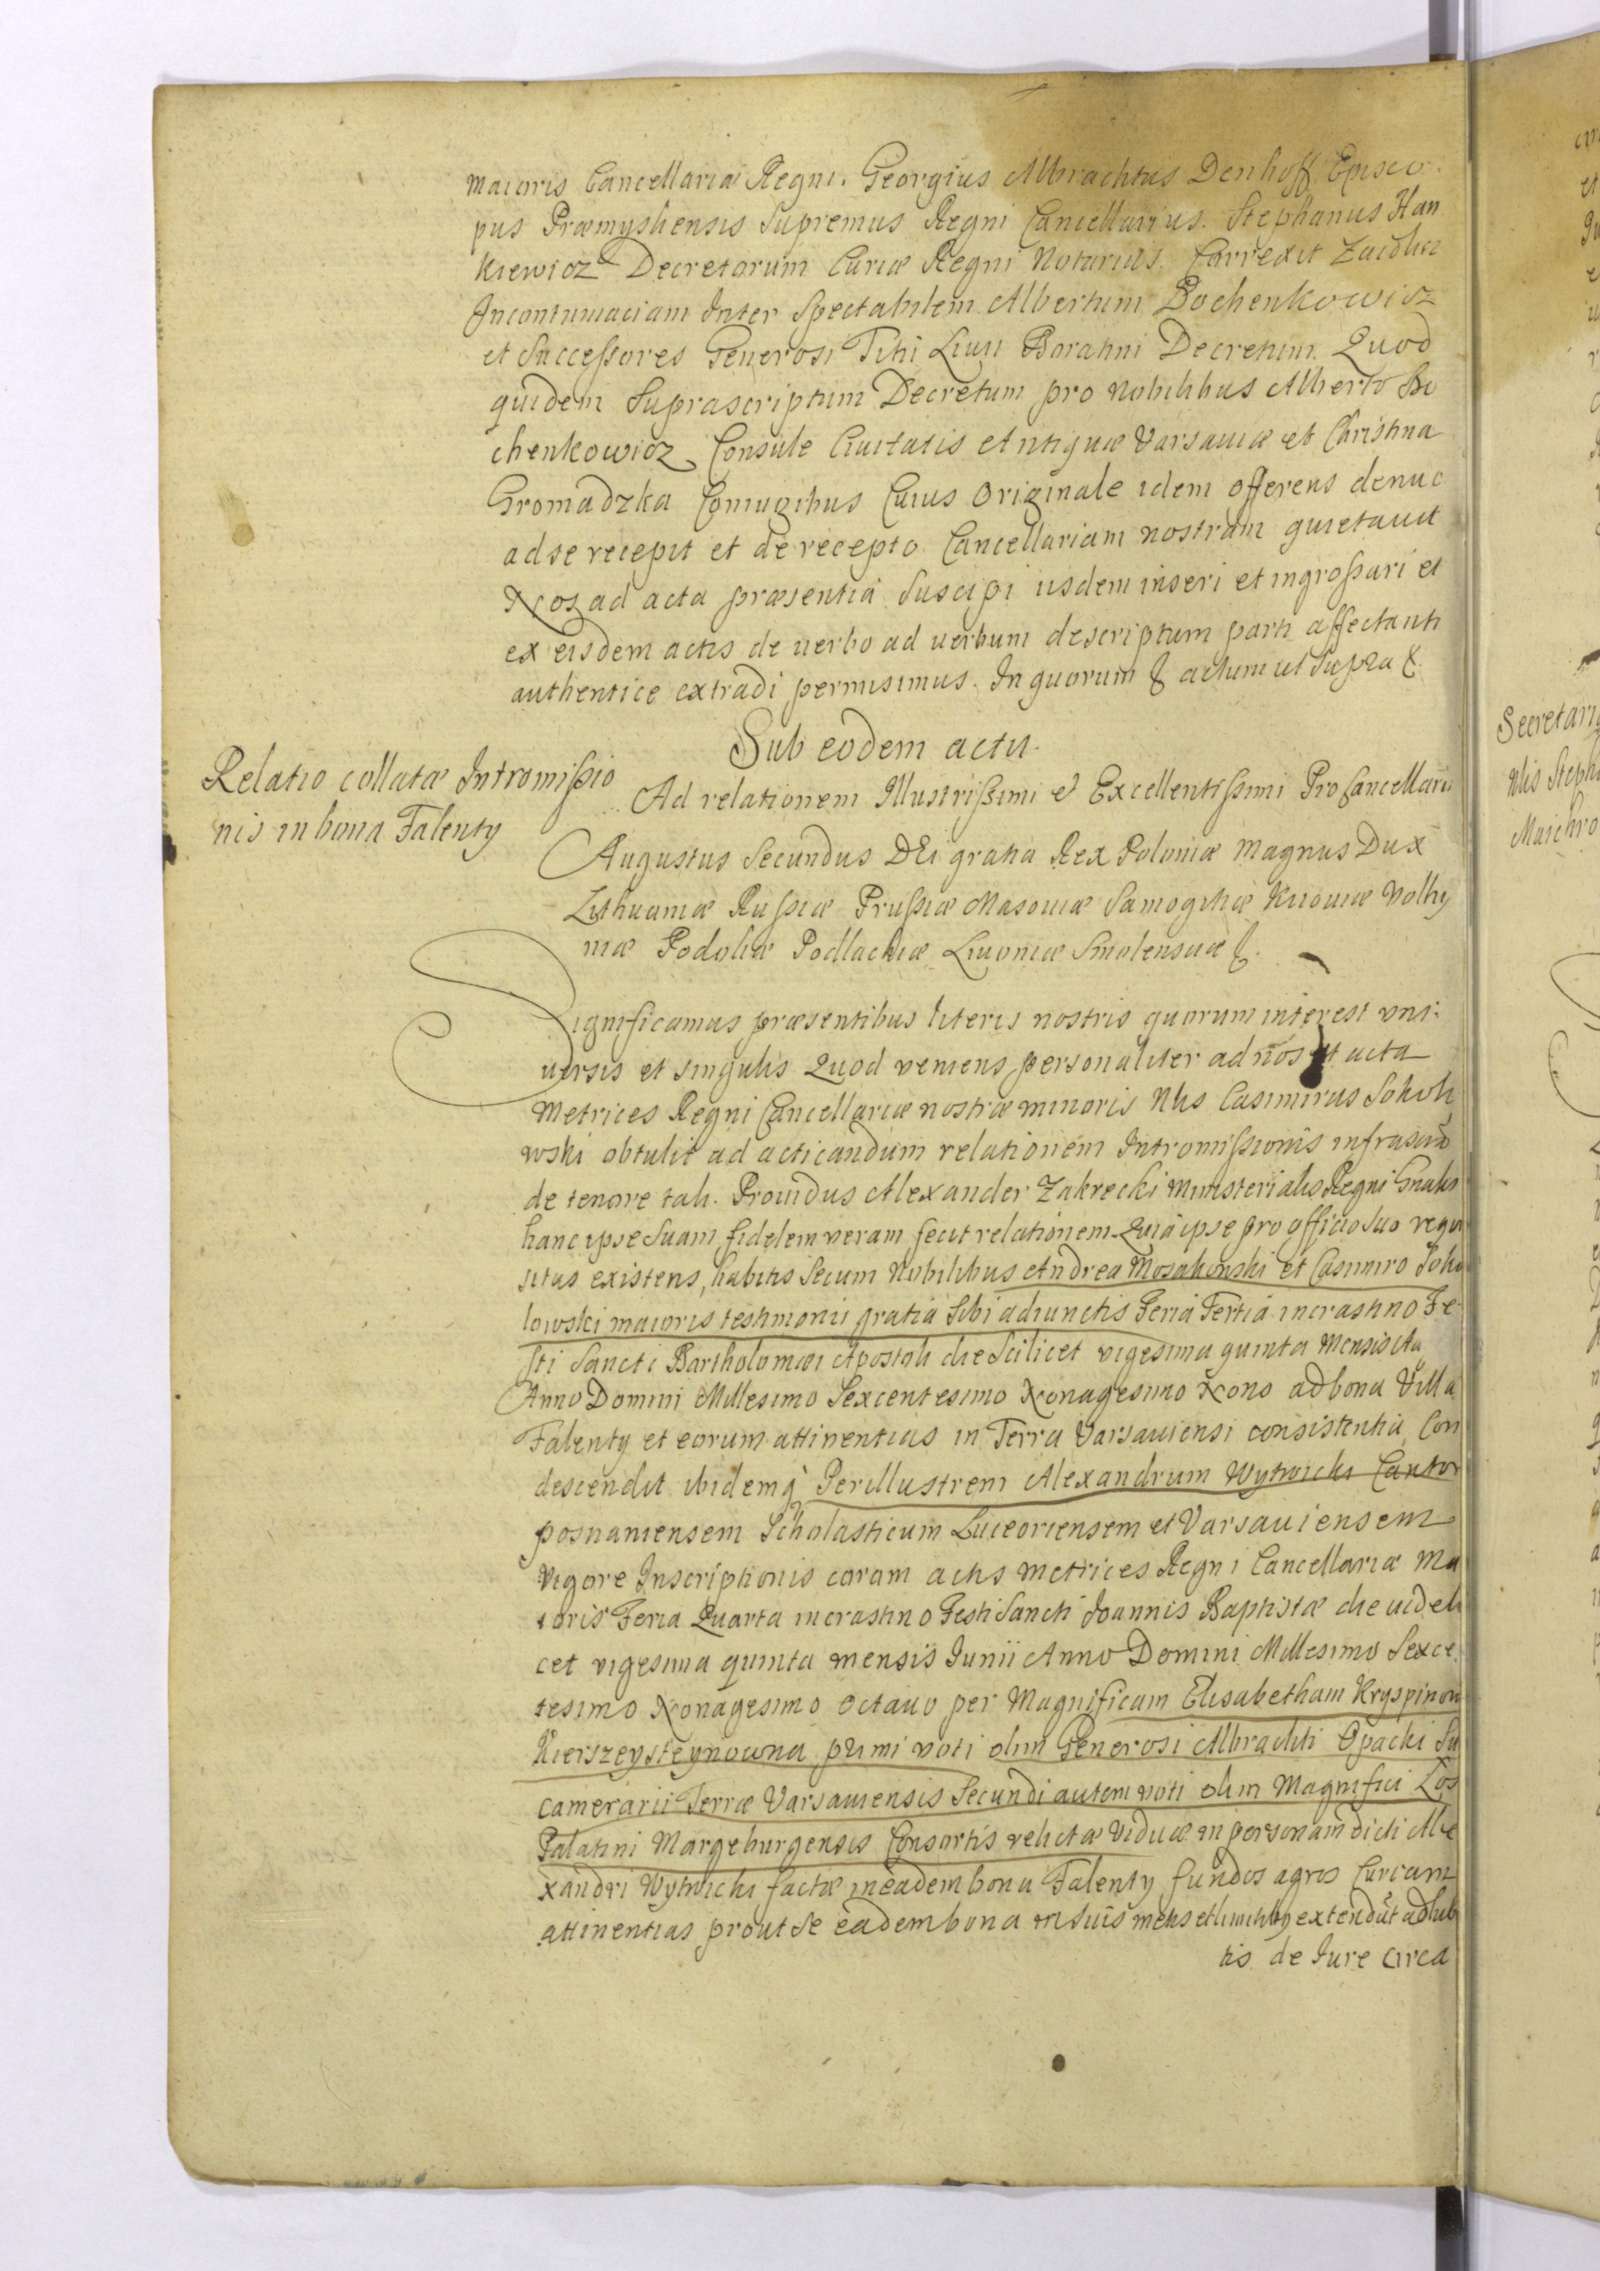 maioris Cancellariæ Regni. Georgius Albrachtus Denhoff Episco
pus Præmysliensis Supremus Regni Cancellarius. Stephanus Han
kiewicz Decretorum Curiæ Regni Notarius. Correxit Zaidlic
In contumaciam Inter Spectabilem Albertum Bochenkowicz
et Successores Generosi Titi Liuii Boratini Decretum. Quod
quidem Suprascriptum Decretum pro Nobilibus Alberto Bo
chenkowicz Consule Ciuitatis Antiquæ Varsauiæ et Christina
Gromadzka Coniugibus Cuius Originale idem offerens denuo
ad se recepit et de recepto Cancellariam nostram quietauit
Nos ad acta præsentia Suscipi iisdem inseri et ingrossari et
ex eisdem actis de uerbo ad uerbum descriptum parti affectanti
authentice extradi permisimus. In quorum & actum ut Supra &.
Sub eodem actu.
Relatio collatæ Intromissio
nis in bona Falenty
Ad relationem Illustrissimi et Excellentissimi ProCancellarii
Augustus Secundus DEi gratia Rex Poloniæ Magnus Dux
Lithuaniæ Russiæ Prussiæ Masouiæ Samogitiæ Kiiouiæ Volhy
niæ Podoliæ Podlachiæ Liuoniæ Smolensciæ &.
Significamus præsentibus literis nostris quorum interest vni:
uersis et singulis Quod veniens personaliter ad nos et acta
Metrices Regni Cancellariæ nostræ minoris Nlis Casimirus Sokoli
wski obtulit ad acticandum relationem Intromissionis infrascrip
de tenore tali. Prouidus Alexander Zakrecki Ministerialis Regni Gnalis
hanc ipse Suam fidelem veram fecit relationem Quia ipse pro officio Suo requi
situs existens, habitis Secum Nobilibus Andrea Mosakowski et Casimiro Soko
lowski maioris testimonii gratia Sibi adiunctis Feria Tertia in crastino Fe
sti Sancti Bartholomæi Apostoli die Scilicet vigesima quinta Mensis Au
Anno Domini Millesimo Sexcentesimo Nonagesimo Nono ad bona Villa
Falenty et eorum attinentias in Terra Varsauiensi consistentia Con
descendit ibidemq Perillustrem Alexandrum Wytwicki Cantor
posnaniensem Scholasticum Luceoriensem et Varsauiensem
vigore Inscriptionis coram actis Metrices Regni Cancellariæ Ma
ioris Feria Quarta in crastino Festi Sancti Joannis Baptistæ die uideli
cet vigesima quinta mensis Iunii Anno Domini Millesimo Sexce
tesimo Nonagesimo Octauo per Magnificam Elisabetham Kryspinon
Kierszeysteynowna primi voti olim Generosi Albrachti Opacki Su
camerarii Terræ Varsauiensis Secundi autem voti olim Magnifici Los
Palatini Margeburgensis Consortis relictæ Viduæ in personam dicti Ale
xandri Wytwicki factæ in eadem bona Falenty fundos agros Curiam
attinentias prout se eadem bona in Suis metis et limitibus extendut adhib
tis de Iure circa